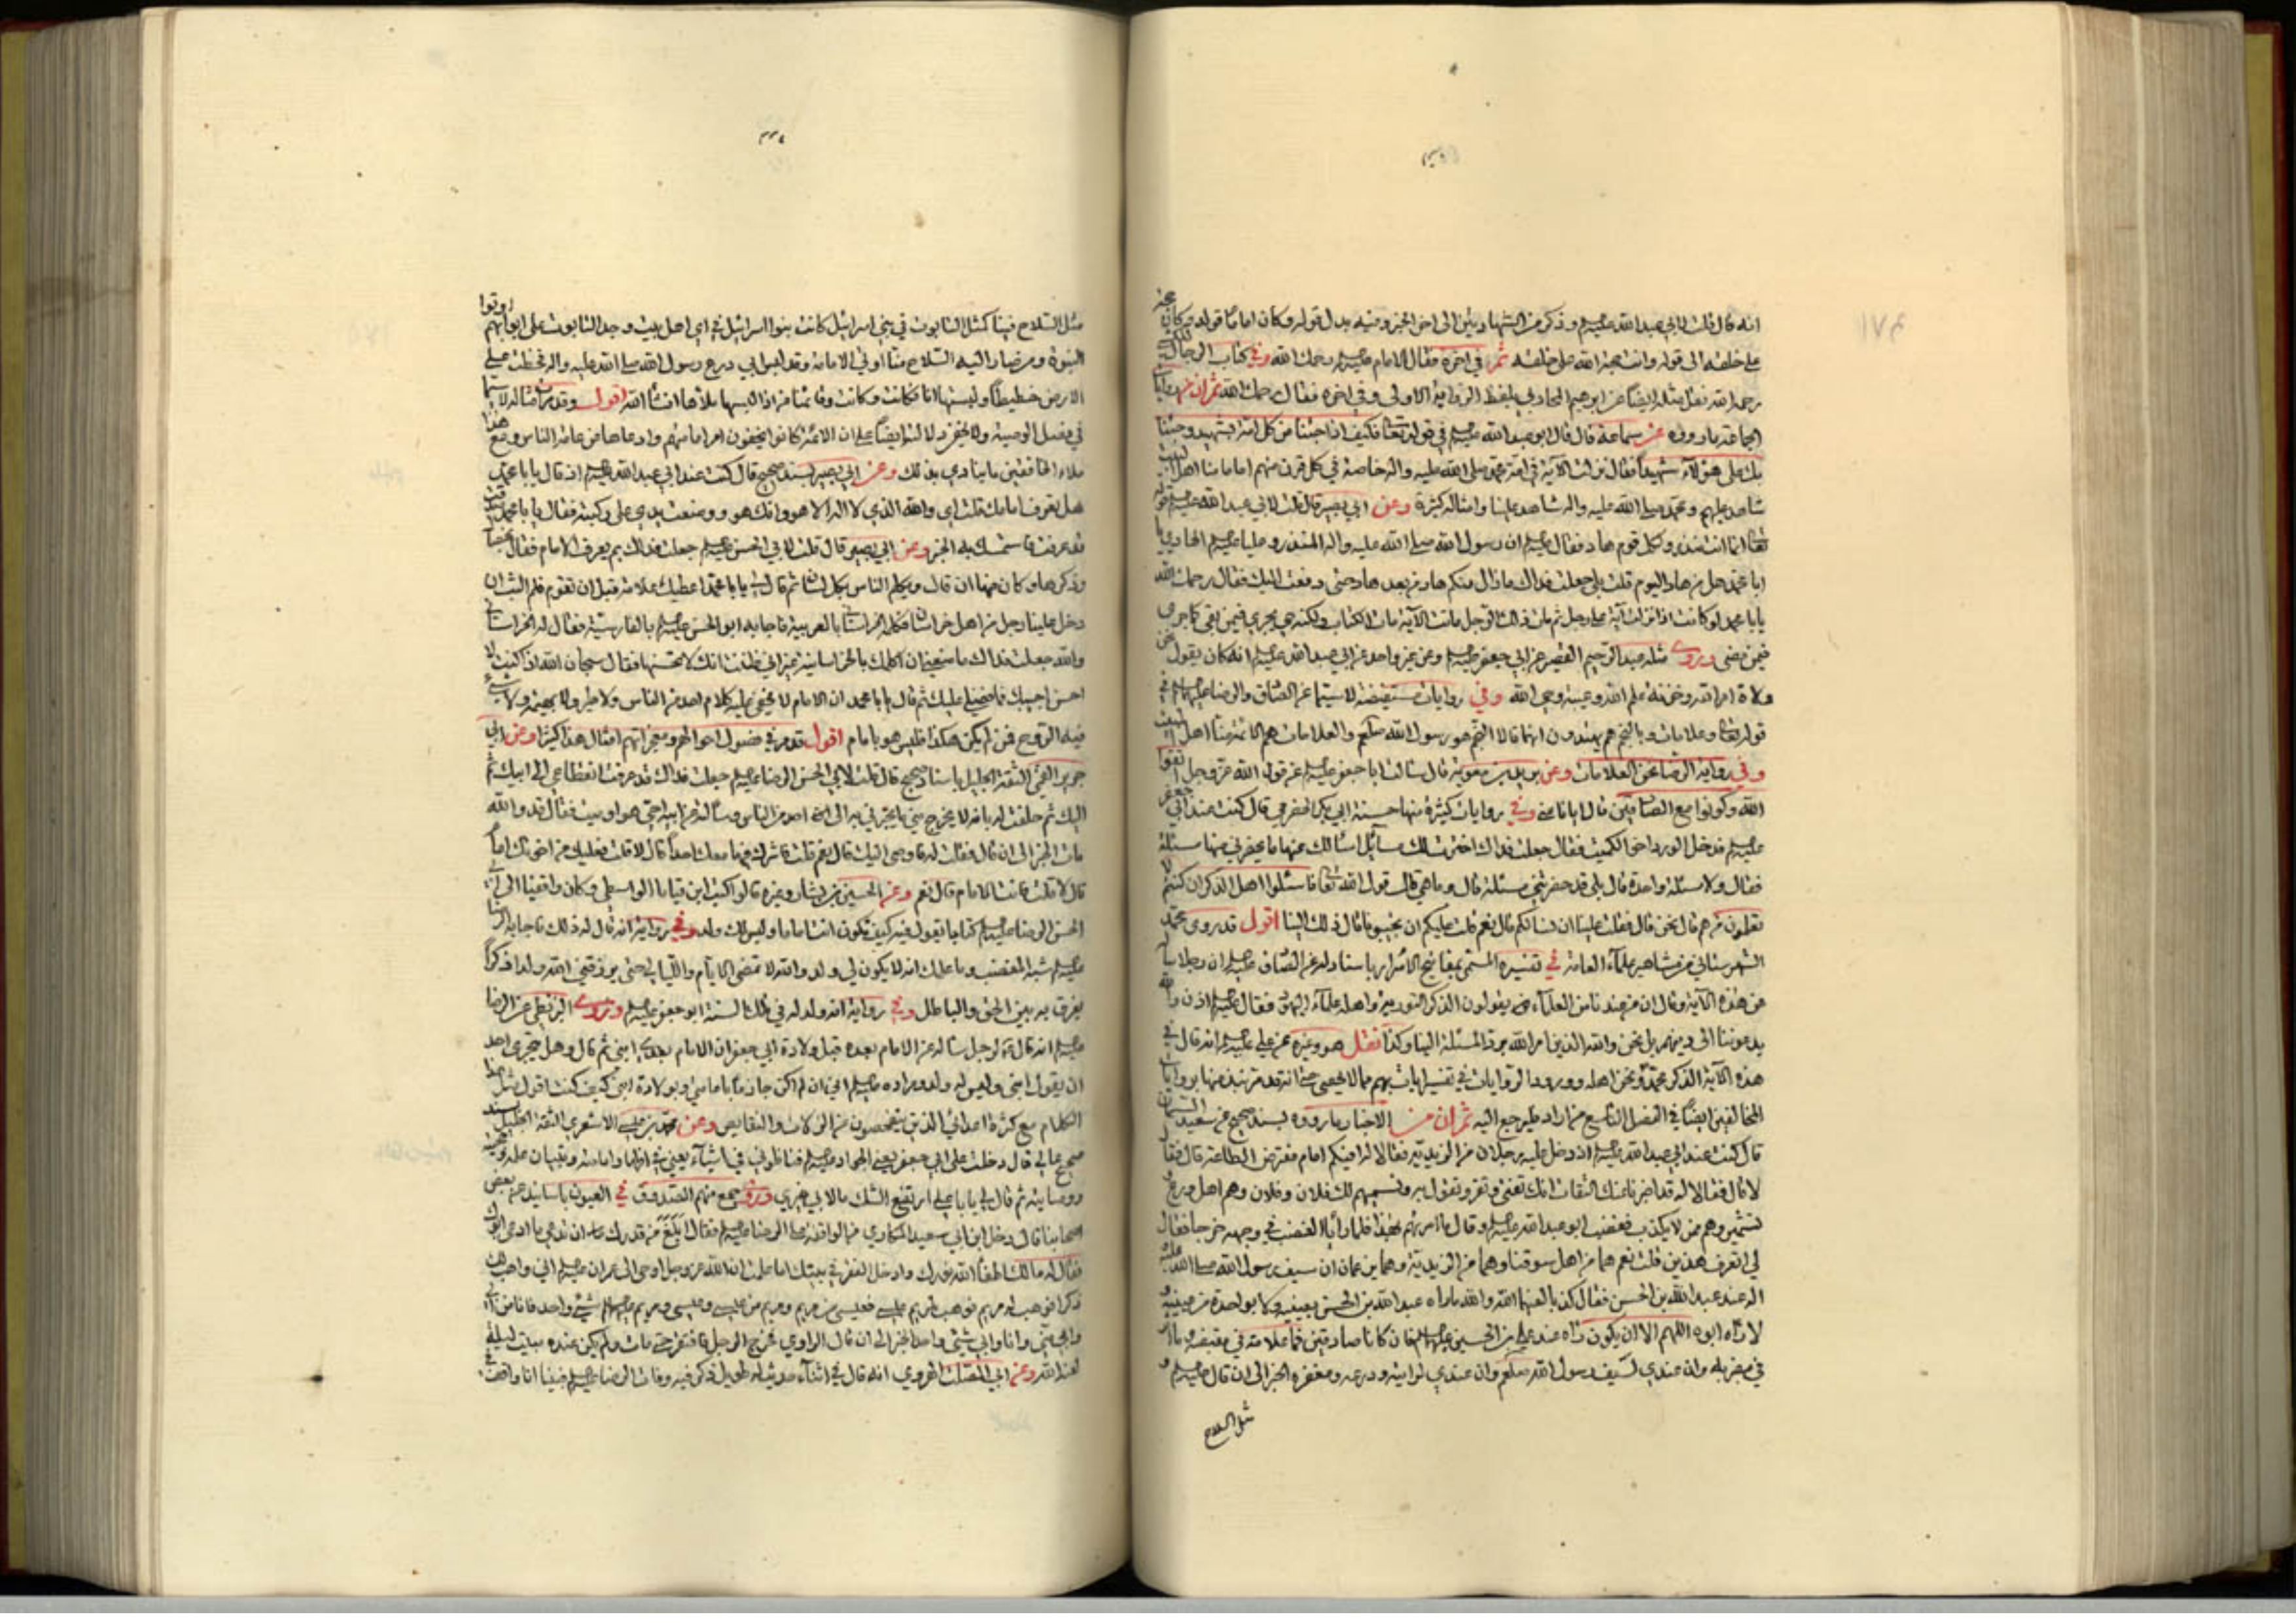 انه قال قلت لابي عبد الله عليه السلام وذكر من الشهادتين الى اخر الخبر ومنه بدل قوله وكان اماما قوله وكان
على خلقه الى قوله وانت حجة الله على خلقه ثم في اخره فقال الامام عليه السلام رحمك الله وفي كتاب الرجال
رحمه الله نقل مثله ايضا عن ابرهيم المخارقي بلفظ الرواية الاولى وفي اخره فقال رحمك الله ثم ان
الجماعة ما رووه عن سماعة قال قال ابو عبد الله عليه السلام في قوله تعا فكيف اذا جئنا من كل امة بشهيد وجئنا
بك على هؤلاء شهيدا فقال نزلت الآية في امة محمد صلى الله عليه واله خاصة في كل قرن منهم امام منا
شاهد عليهم ومحمد صلى الله عليه واله شاهد علينا وامثاله كثيرة وعن ابي بصير قال قلت لابي عبد الله عليه السلام
تعا انما انت منذر ولكل قوم هاد فقال عليه السلام ان رسول الله صلى الله عليه واله المنذر وعليا عليه السلام الهادي يا
ابا محمد هل من هاد اليوم قلت بلى جعلت فداك ما زال منكم هاد من بعد هاد حتى دفعت اليك فقال رحمك الله
يا با محمد لو كانت اذا نزلت آية على رجل ثم مات ذلك الرجل ماتت الآية مات الكتاب ولكنه حي يجري فيمن بقي كما جرى
فيمن مضى وروى مثله عبد الرحيم القصير عن ابي جعفر عليه السلام وعن غير واحد عن ابي عبد الله عليه السلام انه كان يقول نحن
ولاة امر الله وخزنة علم الله وعيبة وحي الله وفي روايات مستفيضة لا سيما عن الصادق والرضا عليهما السلام في
قوله تعا وعلامات وبالنجم هم يهتدون انهما قالا النجم هو رسول الله صلعم والعلامات هم الائمة منا اهل البيت
وفي رواية الرضا نحن العلامات وعن بريد بن معوية قال سالت ابا جعفر عليه السلام عن قول الله عز وجل اتقوا
الله وكونوا مع الصادقين قال ايانا عنى وفي روايات كثيرة منها حسنة ابي بكر الحضرمي قال كنت عند ابي جعفر
عليه السلام فدخل الورد اخو الكميت فقال جعلت فداك اخترت لك مسائل اسالك عنها ما يحضرني منها مسئلة
فقال ولا مسئلة واحدة قال بلى قد حضرتني مسئلة قال وما هي قال قول الله تعا فاسئلوا اهل الذكر ان كنتم لا
تعلمون من هم قال نحن قال فقلت علينا ان نسالكم قال نعم قلت عليكم ان تجيبونا قال ذلك الينا اقول قد روى محمد
الشهرستاني من مشاهير علماء العامة في تفسيره المسمى بمفاتيح الاسرار باسناد له عن الصادق عليه السلام ان رجلا ساله
عن هذه الآية وقال ان من عندنا من العلماء يقولون الذكر التورية واهله علماء اليهود فقال عليه السلام اذن والله
يدعوننا الى دينهم بل نحن والله الذين امر الله برد المسئلة الينا وكذا نقل هو وغيره عن علي عليه السلام انه قال في
هذه الآية الذكر محمد ونحن اهله وورود الروايات في تفسير ايات بهم مما لا يحصى حتى انه قد مر نبذ منها بروايات
المخالفين ايضا في الفصل التاسع من اراد فليرجع اليه ثم ان من الاخبار ما رووه بسند صحيح عن سعيد السمان
قال كنت عند ابي عبد الله عليه السلام اذ دخل عليه رجلان من الزيدية فقالا له افيكم امام مفترض الطاعة قال فقال
لا قال فقالا له قد اخبرنا عنك الثقات انك تفتي وتقر وتقول به ونسميهم لك فلان وفلان وهم اهل ورع
وتشمير وهم ممن لا يكذب فغضب ابو عبد الله عليه السلام وقال ما امرتهم بهذا فلما رايا الغضب في وجهه خرجا فقال
لي اتعرف هذين قلت نعم هما من اهل سوقنا وهما من الزيدية وهما يزعمان ان سيف رسول الله صلى الله عليه
واله عند عبد الله بن الحسن فقال كذبا لعنهما الله والله ما راه عبد الله بن الحسن بعينيه ولا بواحدة من عينيه
ولا راه ابوه اللهم الا ان يكون راه عند علي بن الحسين عليهما السلام فان كانا صادقين فما علامة في مقبضه وما اثر
في مضربه وان عندي لسيف رسول الله صلعم وان عندي لراية ودرعه ومغفره الخبر الى ان قال عليه السلام و
مثل السلاح
مثل السلاح فينا كمثل التابوت في بني اسرائيل كانت بنوا اسرائيل في اي اهل بيت وجد التابوت على ابوابهم اوتوا
النبوة ومن صار اليه السلاح منا اوتي الامامة وقد لبس ابي درع رسول الله صلى الله عليه واله فخطت على
الارض خطيطا ولبستها انا فكانت وكانت وقائمنا من اذا لبسها ملأها انشاء الله اقول وقد مر امثاله لا سيما
في فصل الوصية ولا يخفى دلالته ايضا على ان الائمة كانوا يخفون امر امامتهم وادعاءها من عامة الناس ومع هذا
ملاء الخافقين ما ينادي بذلك وعن ابي بصير بسند صحيح قال كنت عند ابي عبد الله عليه السلام اذ قال يا با محمد
هل تعرف امامك قلت اي والله الذي لا اله الا هو وانك هو ووضعت يدي على ركبته فقال يا با محمد
قد عرفت فاستمسك به الخبر وعن ابي بصير قال قلت لابي الحسن عليه السلام جعلت فداك بم يعرف الامام فقال بخصال
وذكرها وكان منها ان قال ويكلم الناس بكل لسان ثم قال لي يا با محمد اعطيك علامة قبل ان تقوم فلم البث ان
دخل علينا رجل من اهل خراسان فكلمه الخراساني بالعربية فاجابه ابو الحسن عليه السلام بالفارسية فقال له الخراساني
والله جعلت فداك ما منعني ان اكلمك بالخراسانية غير اني ظننت انك لا تحسنها فقال سبحان الله اذا كنت لا
احسن اجيبك فما فضلي عليك ثم قال يا با محمد ان الامام لا يخفى عليه كلام احد من الناس ولا طير ولا بهيمة ولا شيء
فيه الروح فمن لم يكن هكذا فليس هو بامام اقول قد مر في فصول احوالهم ومعجزاتهم امثال هذا كثيرا وعن ابي
جرير القمي الثقة الجليل باسناد صحيح قال قلت لابي الحسن الرضا عليه السلام جعلت فداك قد عرفت انقطاعي الى ابيك ثم
اليك ثم حلفت له بانه لا يخرج مني ما يخبرني به الى احد من الناس وسالته عن ابيه احي هو او ميت فقال قد والله
مات الخبر الى ان قال فقلت له فاوصى اليك قال نعم قلت فاشرك فيها معك احدا قال لا قلت فعليك من اخوتك امام
قال لا قلت فانت الامام قال نعم وعن الحسين بن بشار وغيره قالوا كتب ابن قياما الواسطي وكان واقفيا الى ابي
الحسن الرضا عليه السلام كتابا يقول فيه كيف تكون انت اماما وليس لك ولد وفي رواية انه قال له ذلك فاجابه الرضا
عليه السلام شبه المغضب وما علمك انه لا يكون لي ولد والله لا تمضي الايام والليالي حتى يرزقني الله ولدا ذكرا
يفرق به بين الحق والباطل وفي رواية انه ولد له في تلك السنة ابو جعفر عليه السلام وروى البزنطي عن الرضا
عليه السلام انه قال لرجل ساله عن الامام بعده قبل ولادة ابي جعفر ان الامام بعدي ابني ثم قال وهل يجتري احد
ان يقول ابني وليس له ولد ومراده عليه السلام اني ان لم اكن جازما بامامتي وبولادة ابني كيف كنت اقول مثل هذا
الكلام مع كثرة اعدائي الذين يتفحصون عن الزلات والنقايص وعن محمد بن عيسى الاشعري الثقة الجليل بسند
صحيح عالي قال دخلت على ابي جعفر يعني الجواد عليه السلام فناظرني في اشياء يعني في اظهار امامته وتبيان علمه
ووصايته ثم قال لي يا با علي ارتفع الشك ما لابي غيري وروى جمع منهم الصدوق في العيون باسانيد عن بعض
اصحابنا قال دخل ابن ابي سعيد المكاري من الواقفة على الرضا عليه السلام فقال ابلغ من قدرك ان تدعي ما ادعى ابوك
فقال له مالك اطفأ الله نورك وادخل الفقر في بيتك اما علمت ان الله عز وجل اوحى الى عمران عليه السلام اني واهب لك
ذكرا فوهب له مريم فوهب لمريم عيسى فعيسى من مريم ومريم من عيسى وعيسى ومريم عليهما السلام شيء واحد فانا من ابي
وابي مني وانا وابي شيء واحد الخبر الى ان قال الراوي فخرج الرجل فافتقر حتى مات ولم يكن عنده مبيت ليلة
لعنه الله وعن ابي الصلت الهروي انه قال في اثناء حديث له طويل ذكر فيه وفات الرضا عليه السلام فبينا انا واقف